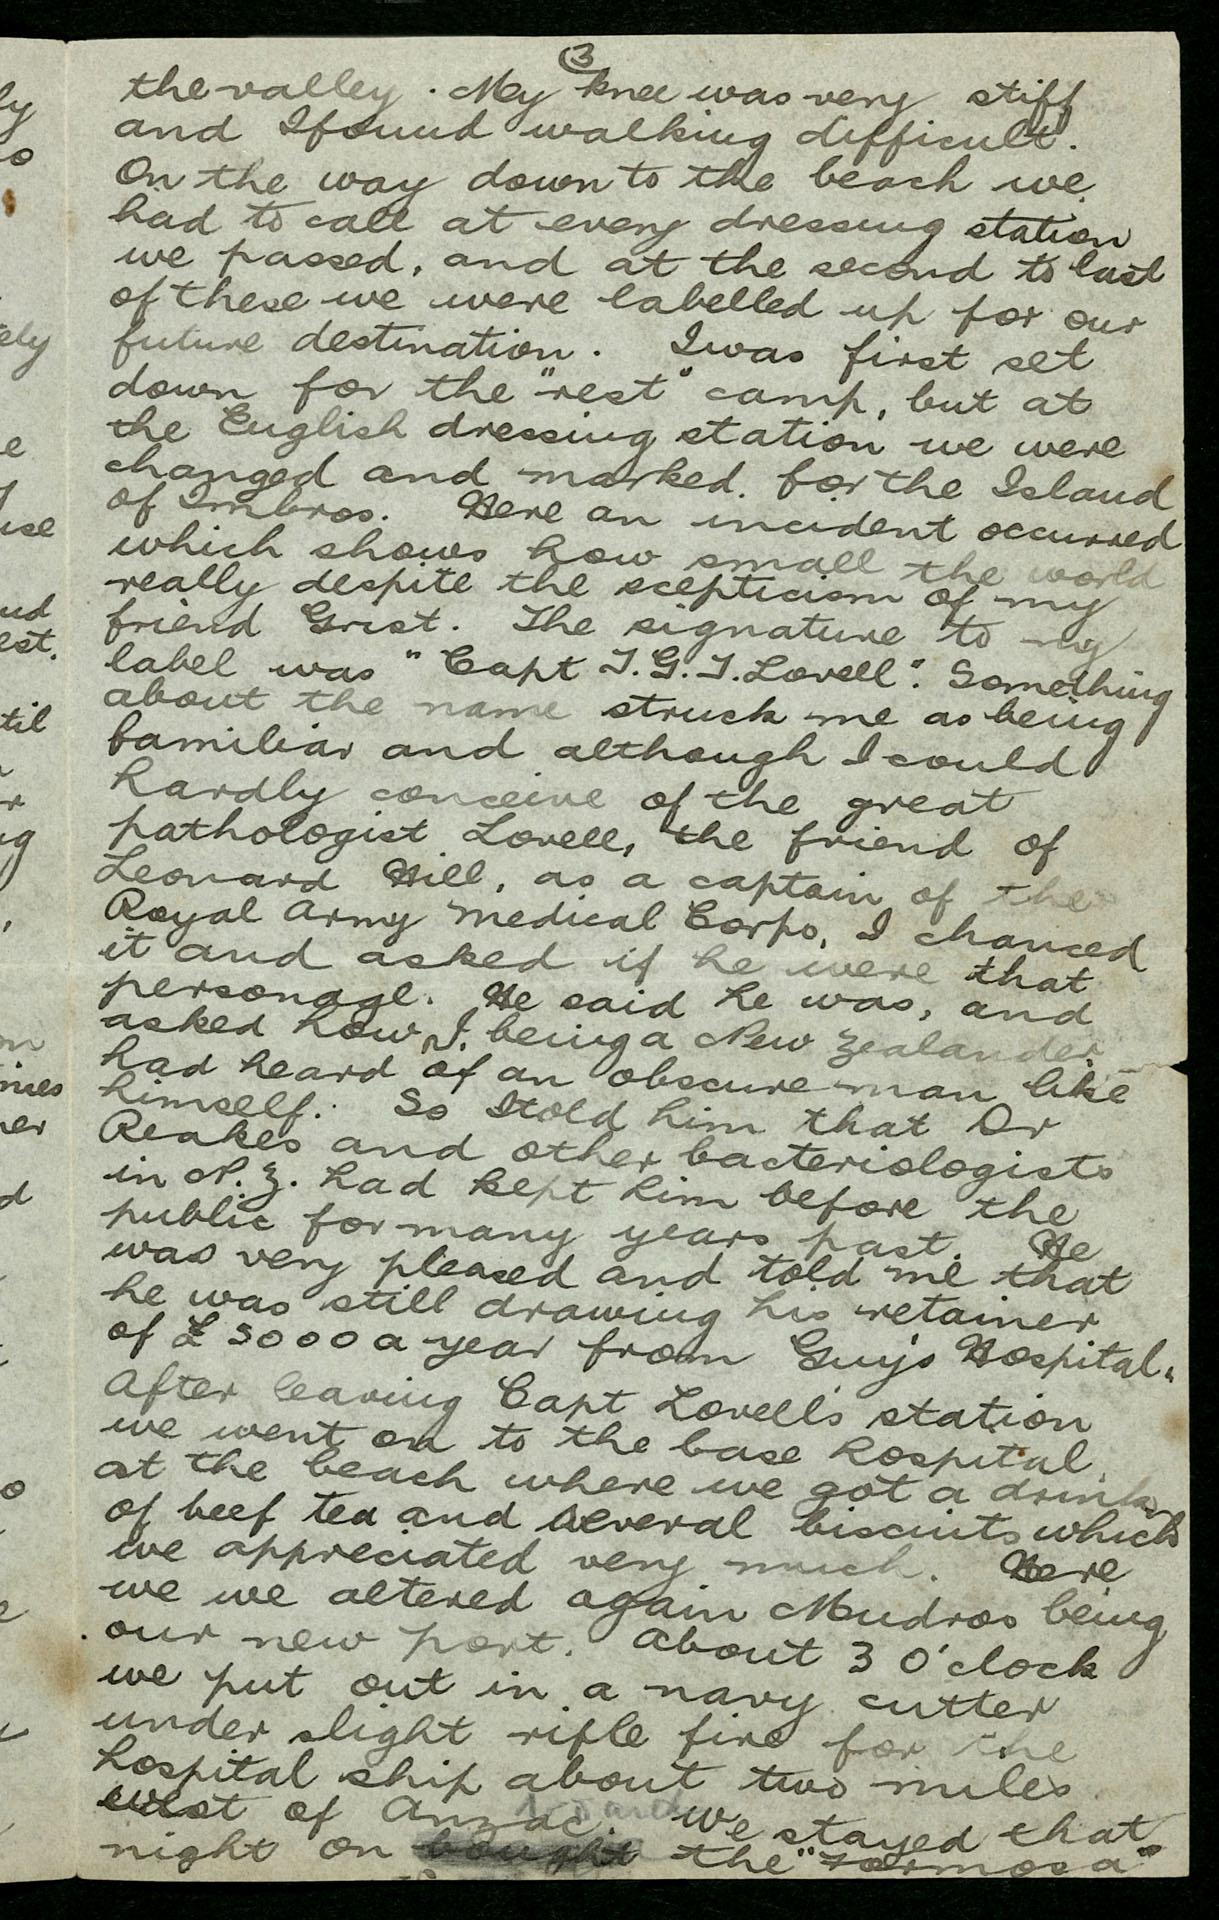 3
the valley. My knee was very stiff
and I found walking difficult.
On the way down to the beach we
had to call at every dressing station
we passed, and at the second to last
of these we were labelled up for our
future destination. I was first set
down for the "rest" camp, but at
the English dressing station we were
changed and marked for the Island
of Imbros. Here an incident occurred
which shows how small the world
really despite the scepticism of my
friend Grist. The signature to my
label was "Capt T.G.T. Lovell". Something
about the name struck me as being
familiar and although I could
hardly conceive of the great
pathologist Lovell, the friend of
Leonard Hill, as a captain of the
Royal Army Medical Corps, I chanced
it and asked if he were that
personage. He said he was, and
asked how I, being a New Zealander
had heard of an obscure man like
himself. So I told him that Dr
Reakes and other bacteriologists
in N.Z. had kept him before the
public for many years past. He
was very pleased and told me that
he was still drawing his retainer
of £5000 a year from Guy's Hospital.
After leaving Capt Lovell's station
we went on to the base hospital
at the beach where we got a drink
of beef tea and several biscuits which
we appreciated very much. Here
we we altered again Mudros being
our new port. About 3 O'clock
we put out in a navy cutter
under slight rifle fire for the
hospital ship about two miles
west of Anzac. We stayed that
night on the "Formosa"